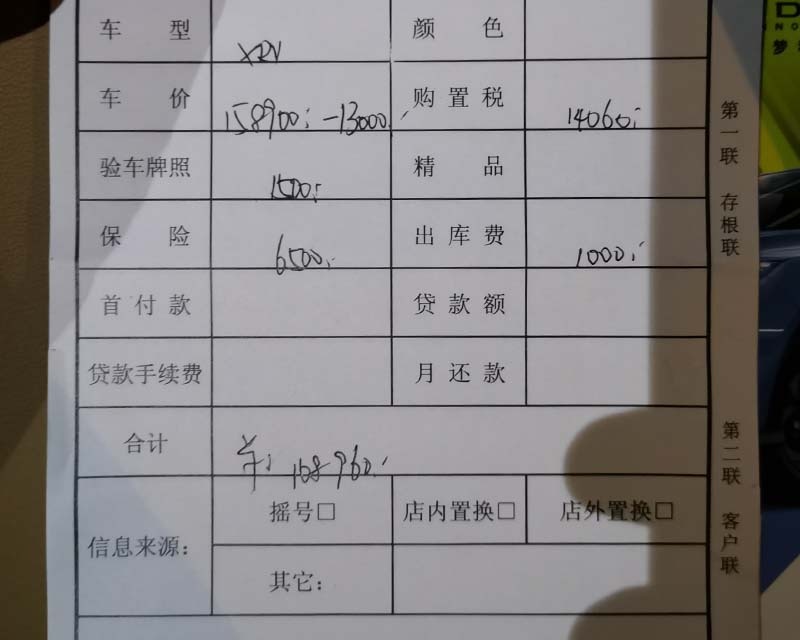 车型 XRV 颜色
车价 158900; -13000. 购置税 14060;
验车牌照 1500; 精品
保险 6500; 出库费 1000;
首付款 贷款额
贷款手续费 月还款
合计 168960;
信息来源： 摇号□ 店内置换□ 店外置换□
其它：
第一联 存根联
第二联 客户联
D
梦